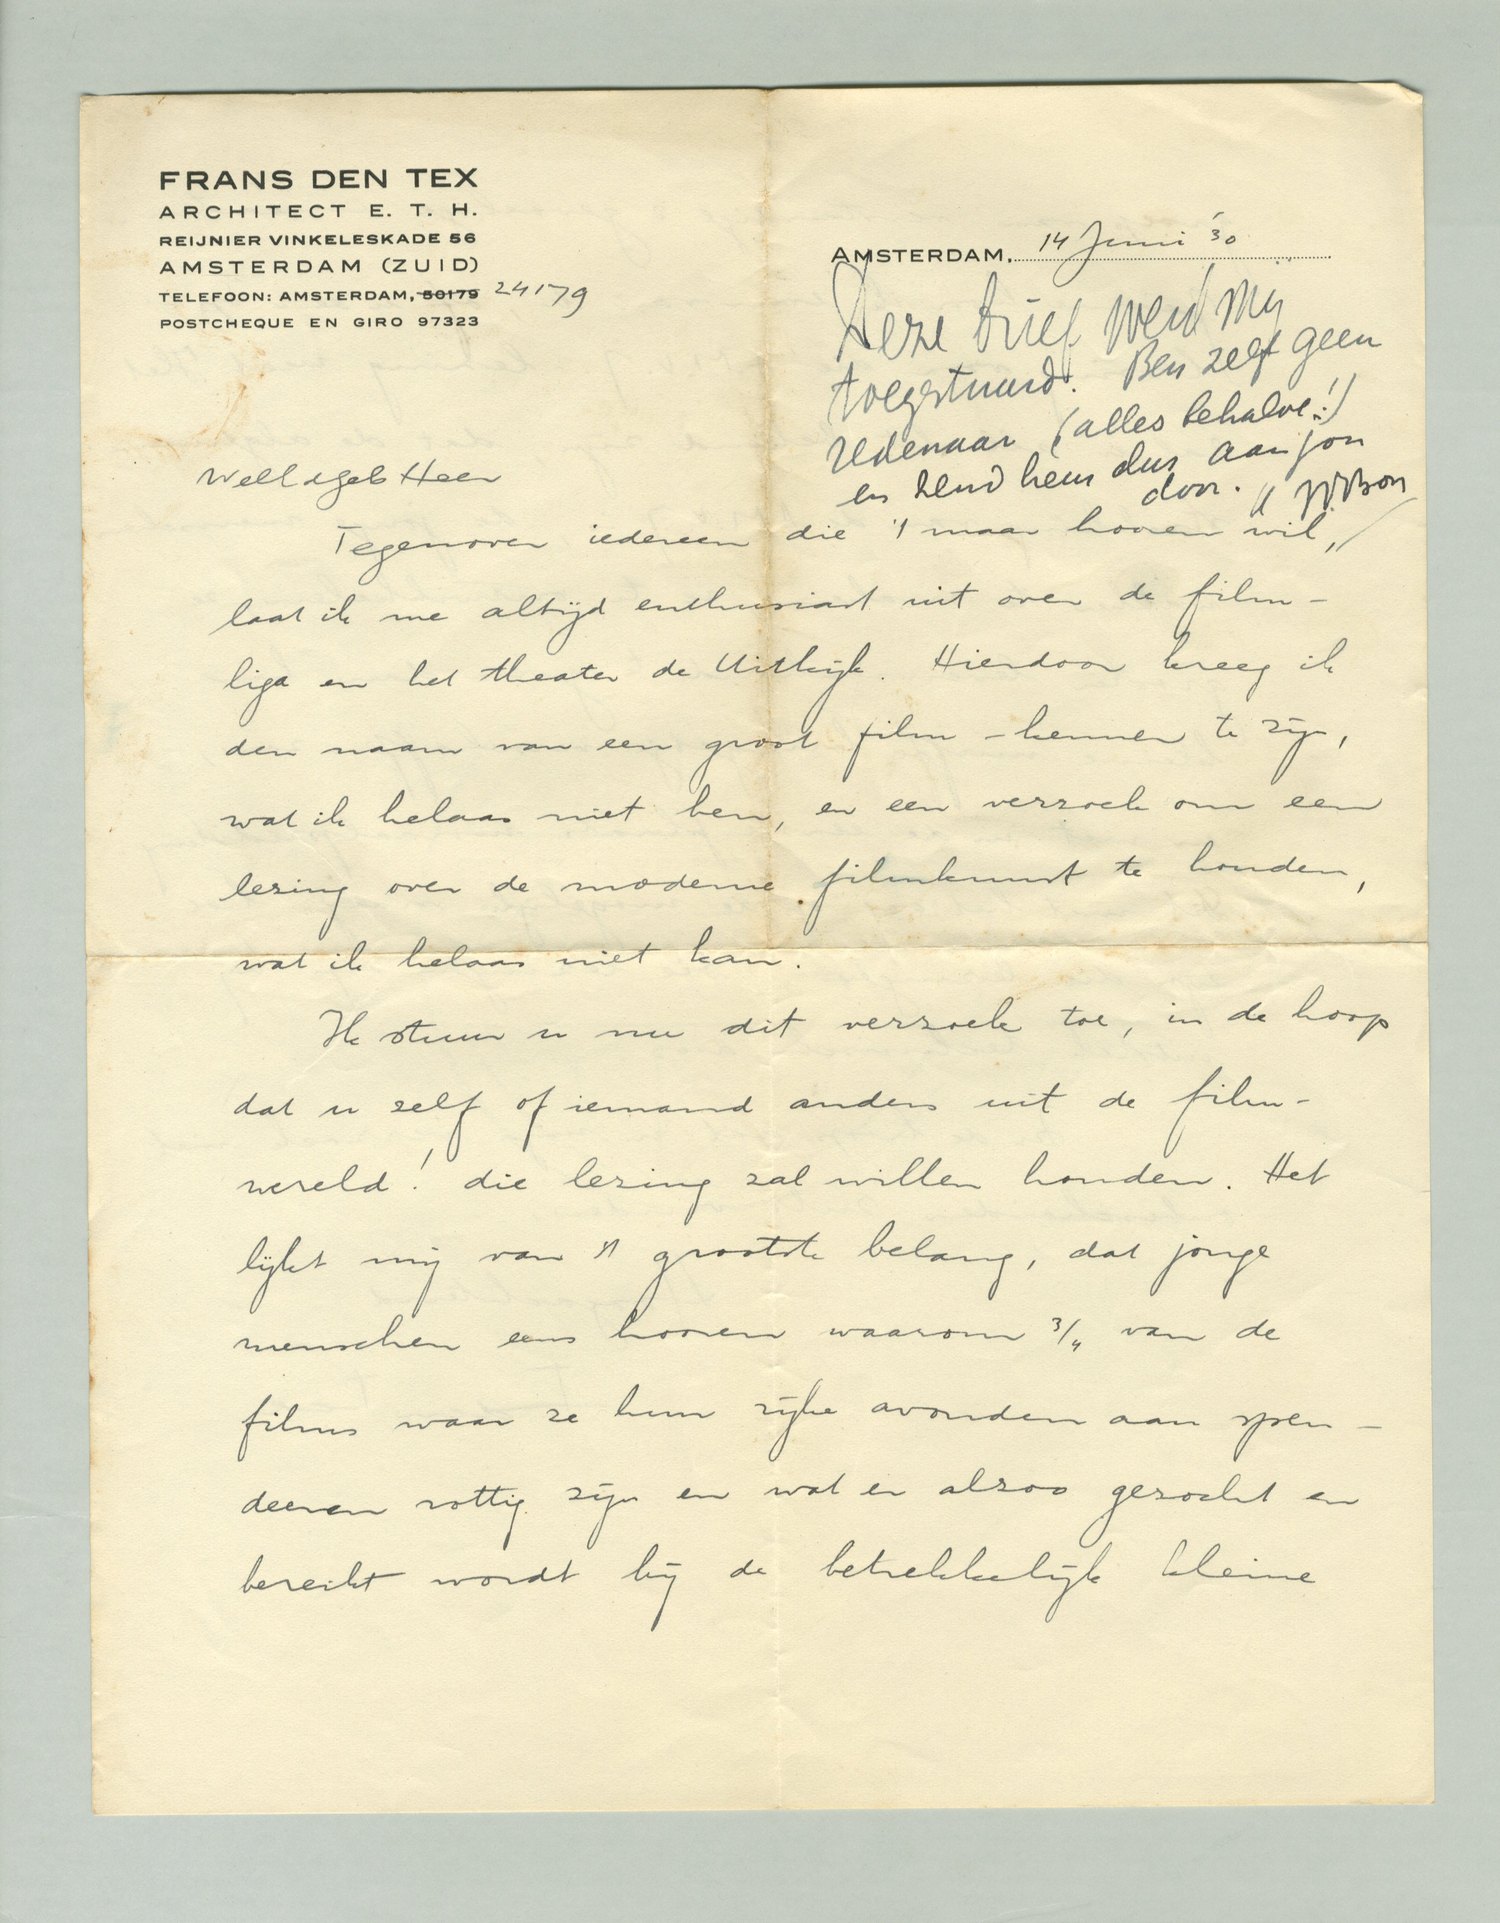 FRANS DEN TEX
ARCHITECT E. T. H.
REIJNIER VINKELESKADE 56
AMSTERDAM (ZUID)
TELEFOON: AMSTERDAM, 50179 24179
POSTCHEQUE EN GIRO 97323
AMSTERDAM, 14 Juni '30
Deze brief werd mij
toegestuurd. Ben zelf geen
redenaar (alles behalve!)
en zend hem dus aan jou
door.
WelEdgeb Heer
Tegenover iedereen die 't maar hooren wil,
laat ik me altijd enthusiast uit over de film-
liga en het theater de Uitkijk. Hierdoor kreeg ik
den naam van een groot film-kenner te zijn,
wat ik helaas niet ben, en een verzoek om een
lezing over de moderne filmkunst te houden,
wat ik helaas niet kan.
Ik stuur u nu dit verzoek toe, in de hoop
dat u zelf of iemand anders uit de film-
wereld! die lezing zal willen houden. Het
lijkt mij van 't grootste belang, dat jonge
menschen eens hooren waarom 3/4 van de
films waar ze hun rijke avonden aan spen-
deeren rottig zijn en wat er alzoo gezocht en
bereikt wordt bij de betrekkelijk kleine